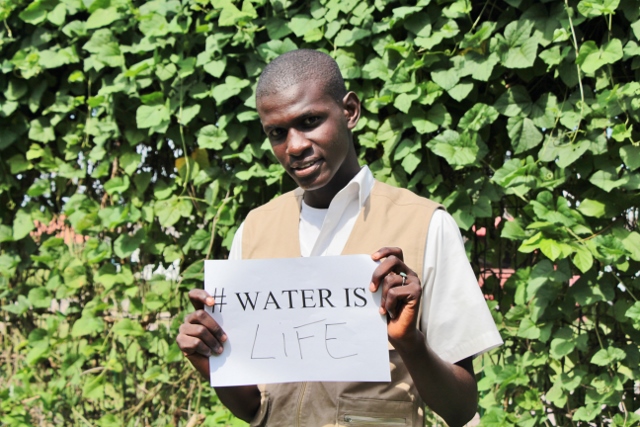 # WATER IS
LIFE